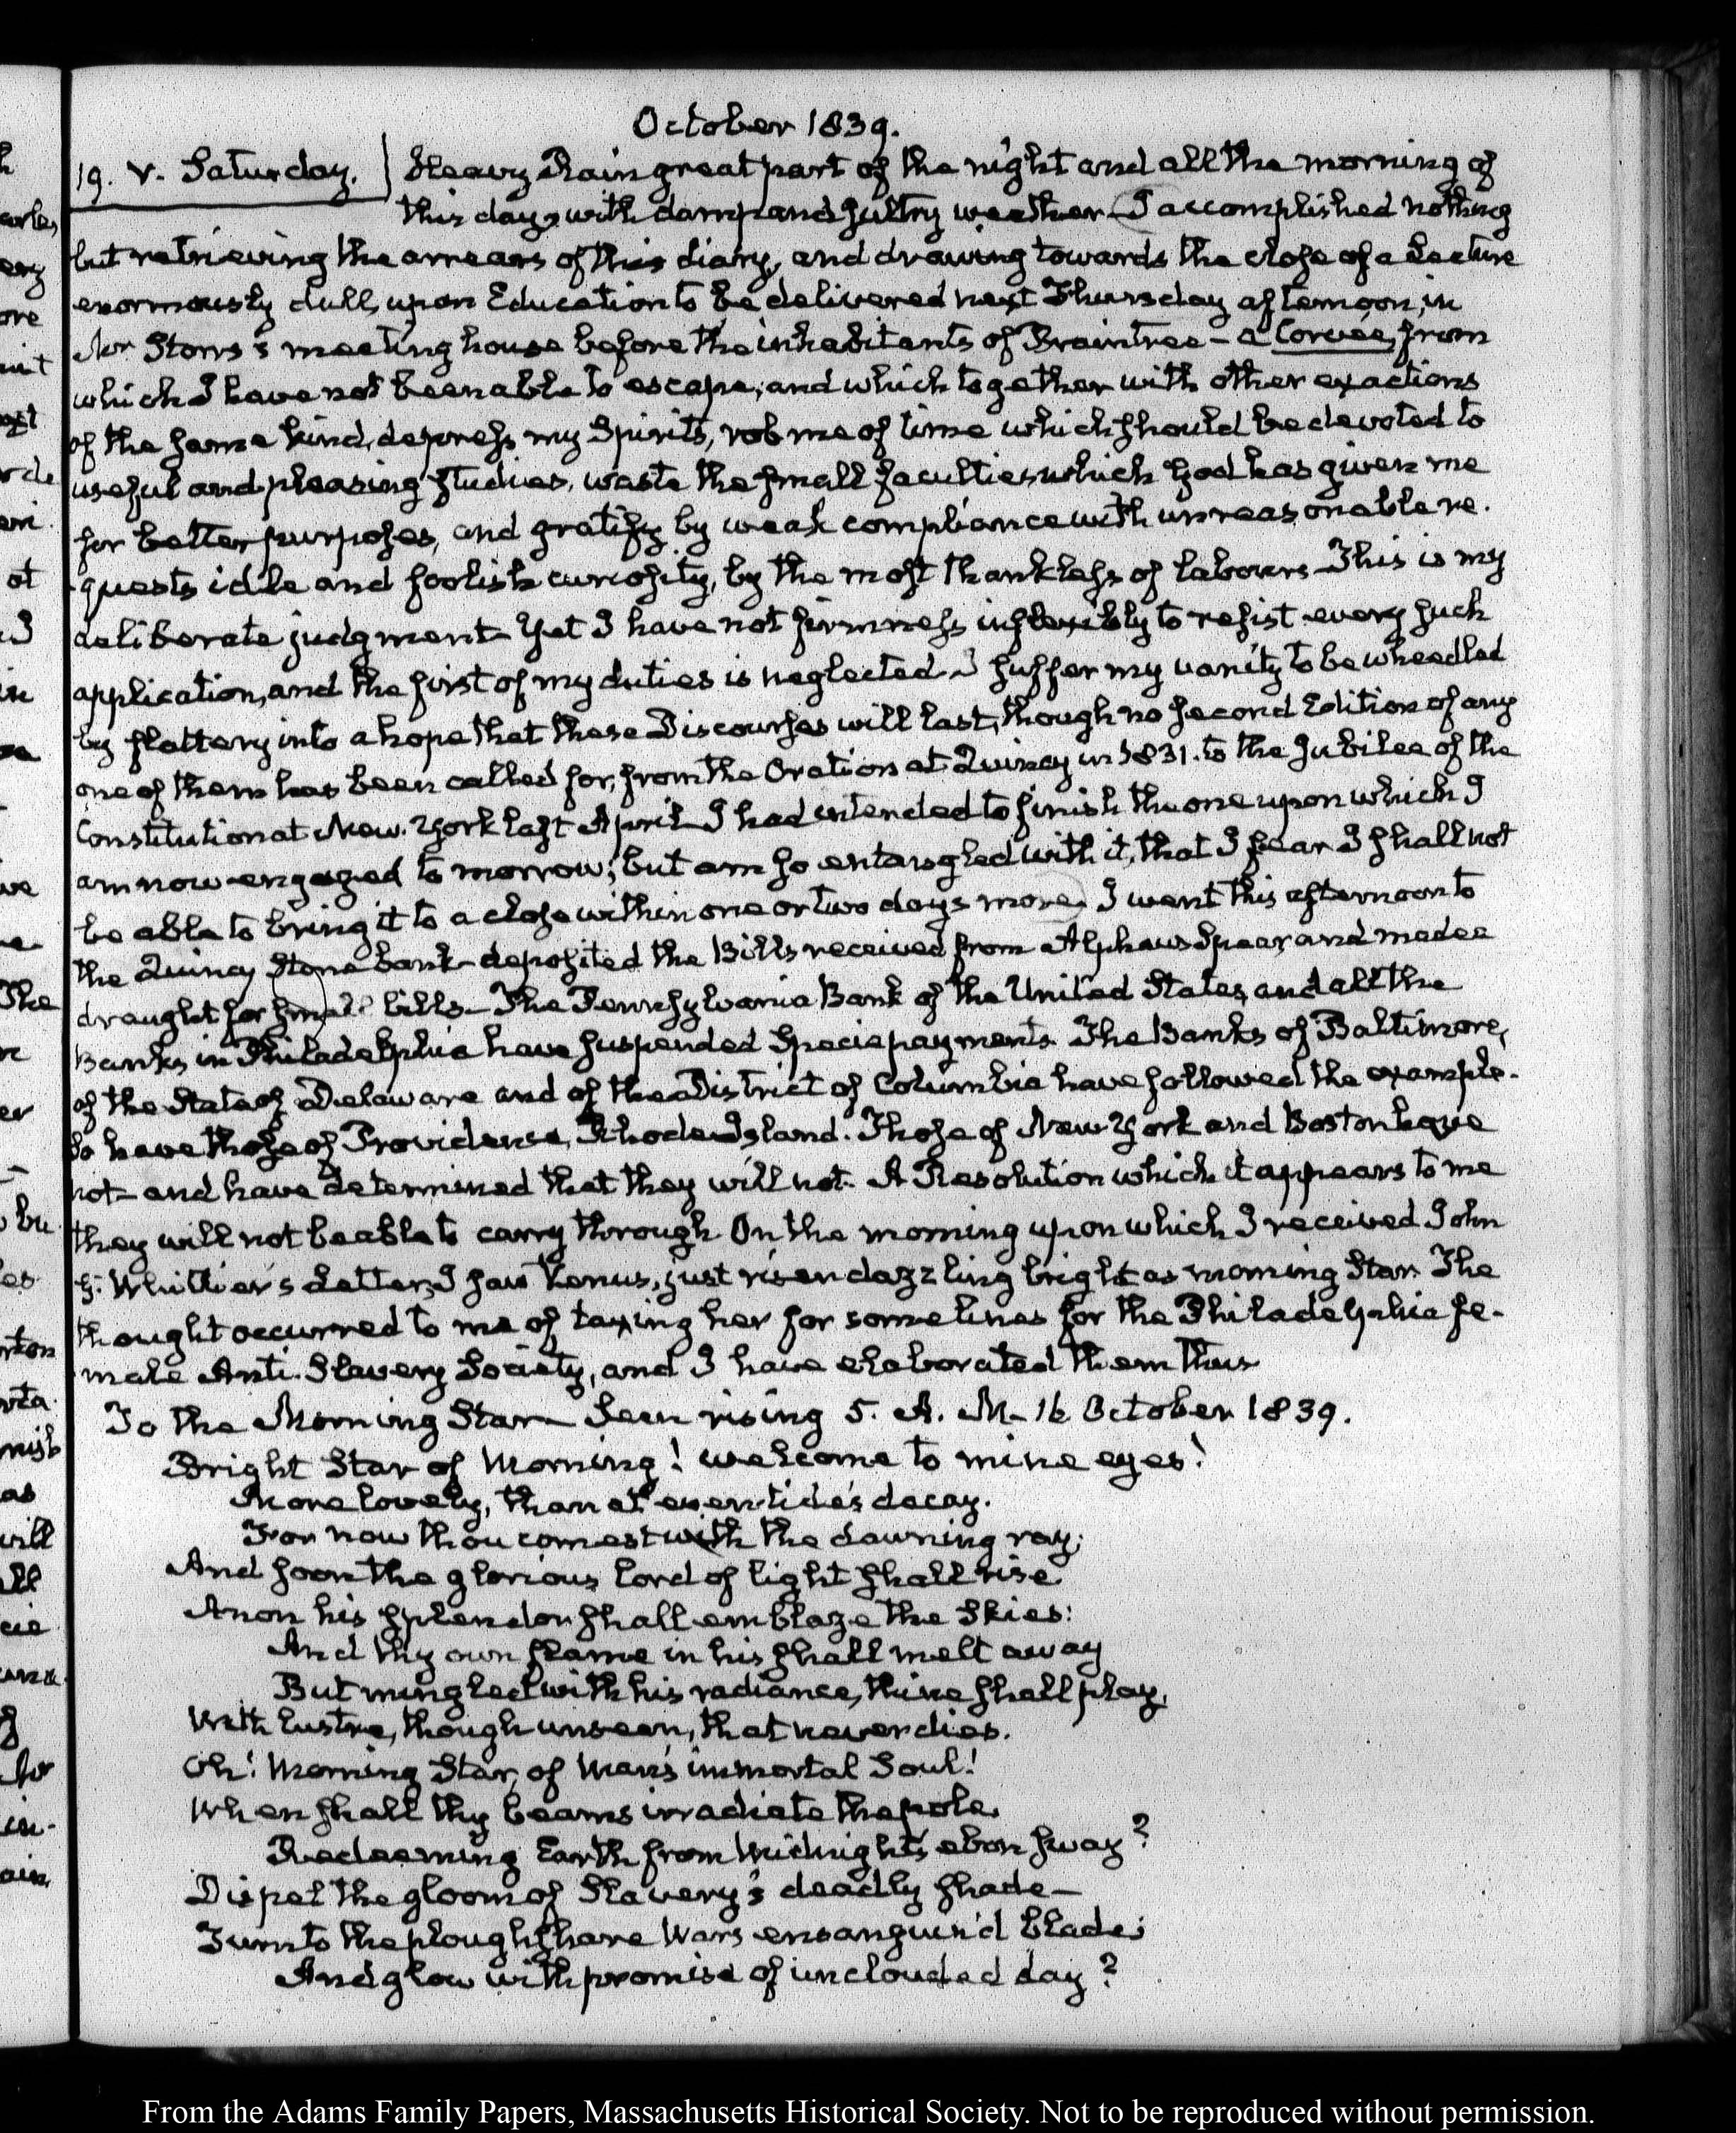 October 1839.
19. V. Saturday. Heavy Rain great part of the night and all the morning of
this day, with damp and sultry weather. I accomplished nothing
but retrieving the arrears of this diary, and drawing towards the close of a Lecture
enormously dull, upon Education to be delivered next Thursday afternoon, in
Mr. Storrs's meeting house before the inhabitants of Braintree - a Corvée, from
which I have not been able to escape, and which together with other exactions
of the same kind, depress my Spirits, rob me of time which should be devoted to
useful and pleasing studies, waste the small faculties which God has given me
for better purposes, and gratify by weak compliance with unreasonable re-
quests idle and foolish curiosity, by the most thankless of labours. This is my
deliberate judgment - Yet I have not firmness inflexibly to resist every such
application, and the first of my duties is neglected. I suffer my vanity to be wheedled
by flattery into a hope that these Discourses will last, though no second Edition of any
one of them has been called for, from the Oration at Quincy in 1831. to the Jubilee of the
Constitution at New-York last April - I had intended to finish the one upon which I
am now engaged to morrow; but am so entangled with it, that I fear I shall not
be able to bring it to a close within one or two days more. I went this afternoon to
the Quincy Stone bank - deposited the Bills received from Alpheus Spear, and made a
draught for small bills - The Pennsylvania Bank of the United States, and all the
Banks in Philadelphia have suspended Specie payments. The Banks of Baltimore,
of the State of Delaware and of the District of Columbia have followed the example.
So have those of Providence, Rhode-Island. Those of New-York and Boston have
not - and have determined that they will not. A Resolution which it appears to me
they will not be able to carry through. On the morning upon which I received John
G. Whittier's Letter, I saw Venus, just risen dazzling bright as morning Star. The
thought occurred to me of taxing her for some lines for the Philadelphia fe-
male Anti-Slavery Society, and I have elaborated them thus
To the Morning Star - Seen rising 5. A. M. - 16 October 1839.
Bright Star of Morning! welcome to mine eyes!
More lovely, than at eventide's decay.
For now thou comest with the dawning ray;
And soon the glorious lord of light shall rise
Anon his splendor shall emblaze the Skies:
And thy own flame in his shall melt away
But mingled with his radiance, thine shall play,
With lustre, though unseen, that never dies.
Oh! Morning Star, of Man's immortal Soul!
When shall thy beams irradiate the pole.
Redeeming Earth from Midnight's ebon sway?
Dispel the gloom of Slavery's deadly shade -
Turn to the ploughshare Wars ensanguin'd blade;
And glow with promise of unclouded day?
From the Adams Family Papers, Massachusetts Historical Society. Not to be reproduced without permission.